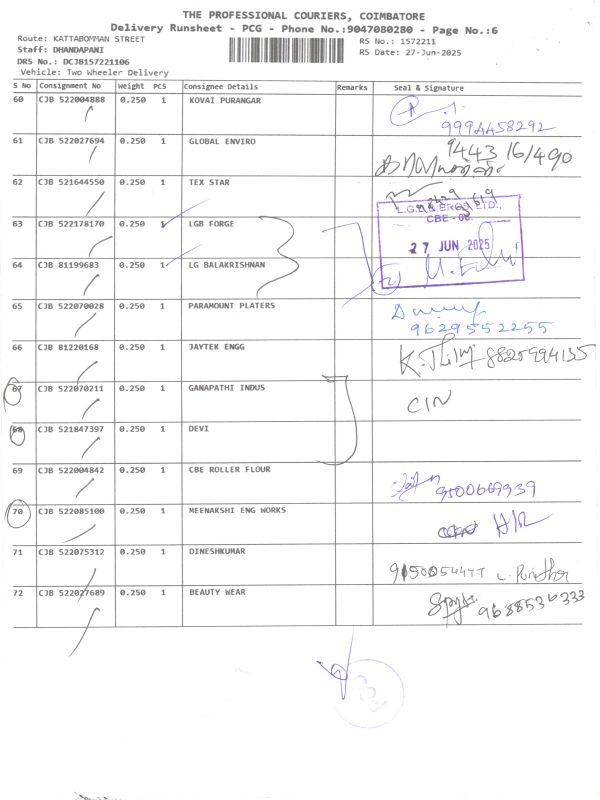 THE PROFESSIONAL COURIERS, COIMBATORE
Delivery Runsheet - PCG - Phone No.:9047080280 - Page No.:6
Route: KATTABOMMAN STREET
RS No.: 1572211
Staff: DHANDAPANI
RS Date: 27-Jun-2025
DRS No.: DCJB157221106
Vehicle: Two Wheeler Delivery
S No Consignment No Weight PCS Consignee Details Remarks Seal & Signature
60 CJB 522004888 0.250 1 KOVAI PURANGAR
9994458292
61 CJB 522027694 0.250 1 GLOBAL ENVIRO 9443 161490
62 CJB 521644550 0.250 1 TEX STAR
L.G.B & BROS LTD.,
CBE - 06.
63 CJB 522178170 0.250 1 LGB FORGE
27 JUN 2025
64 CJB 81199683 0.250 1 LG BALAKRISHNAN
65 CJB 522070028 0.250 1 PARAMOUNT PLATERS
9629552255
66 CJB 81220168 0.250 1 JAYTEK ENGG 8825994135
67 CJB 522070211 0.250 1 GANAPATHI INDUS CIN
68 CJB 521847397 0.250 1 DEVI
69 CJB 522004842 0.250 1 CBE ROLLER FLOUR
9500669939
70 CJB 522085100 0.250 1 MEENAKSHI ENG WORKS
71 CJB 522075312 0.250 1 DINESHKUMAR
72 CJB 522027689 0.250 1 BEAUTY WEAR
9688536333